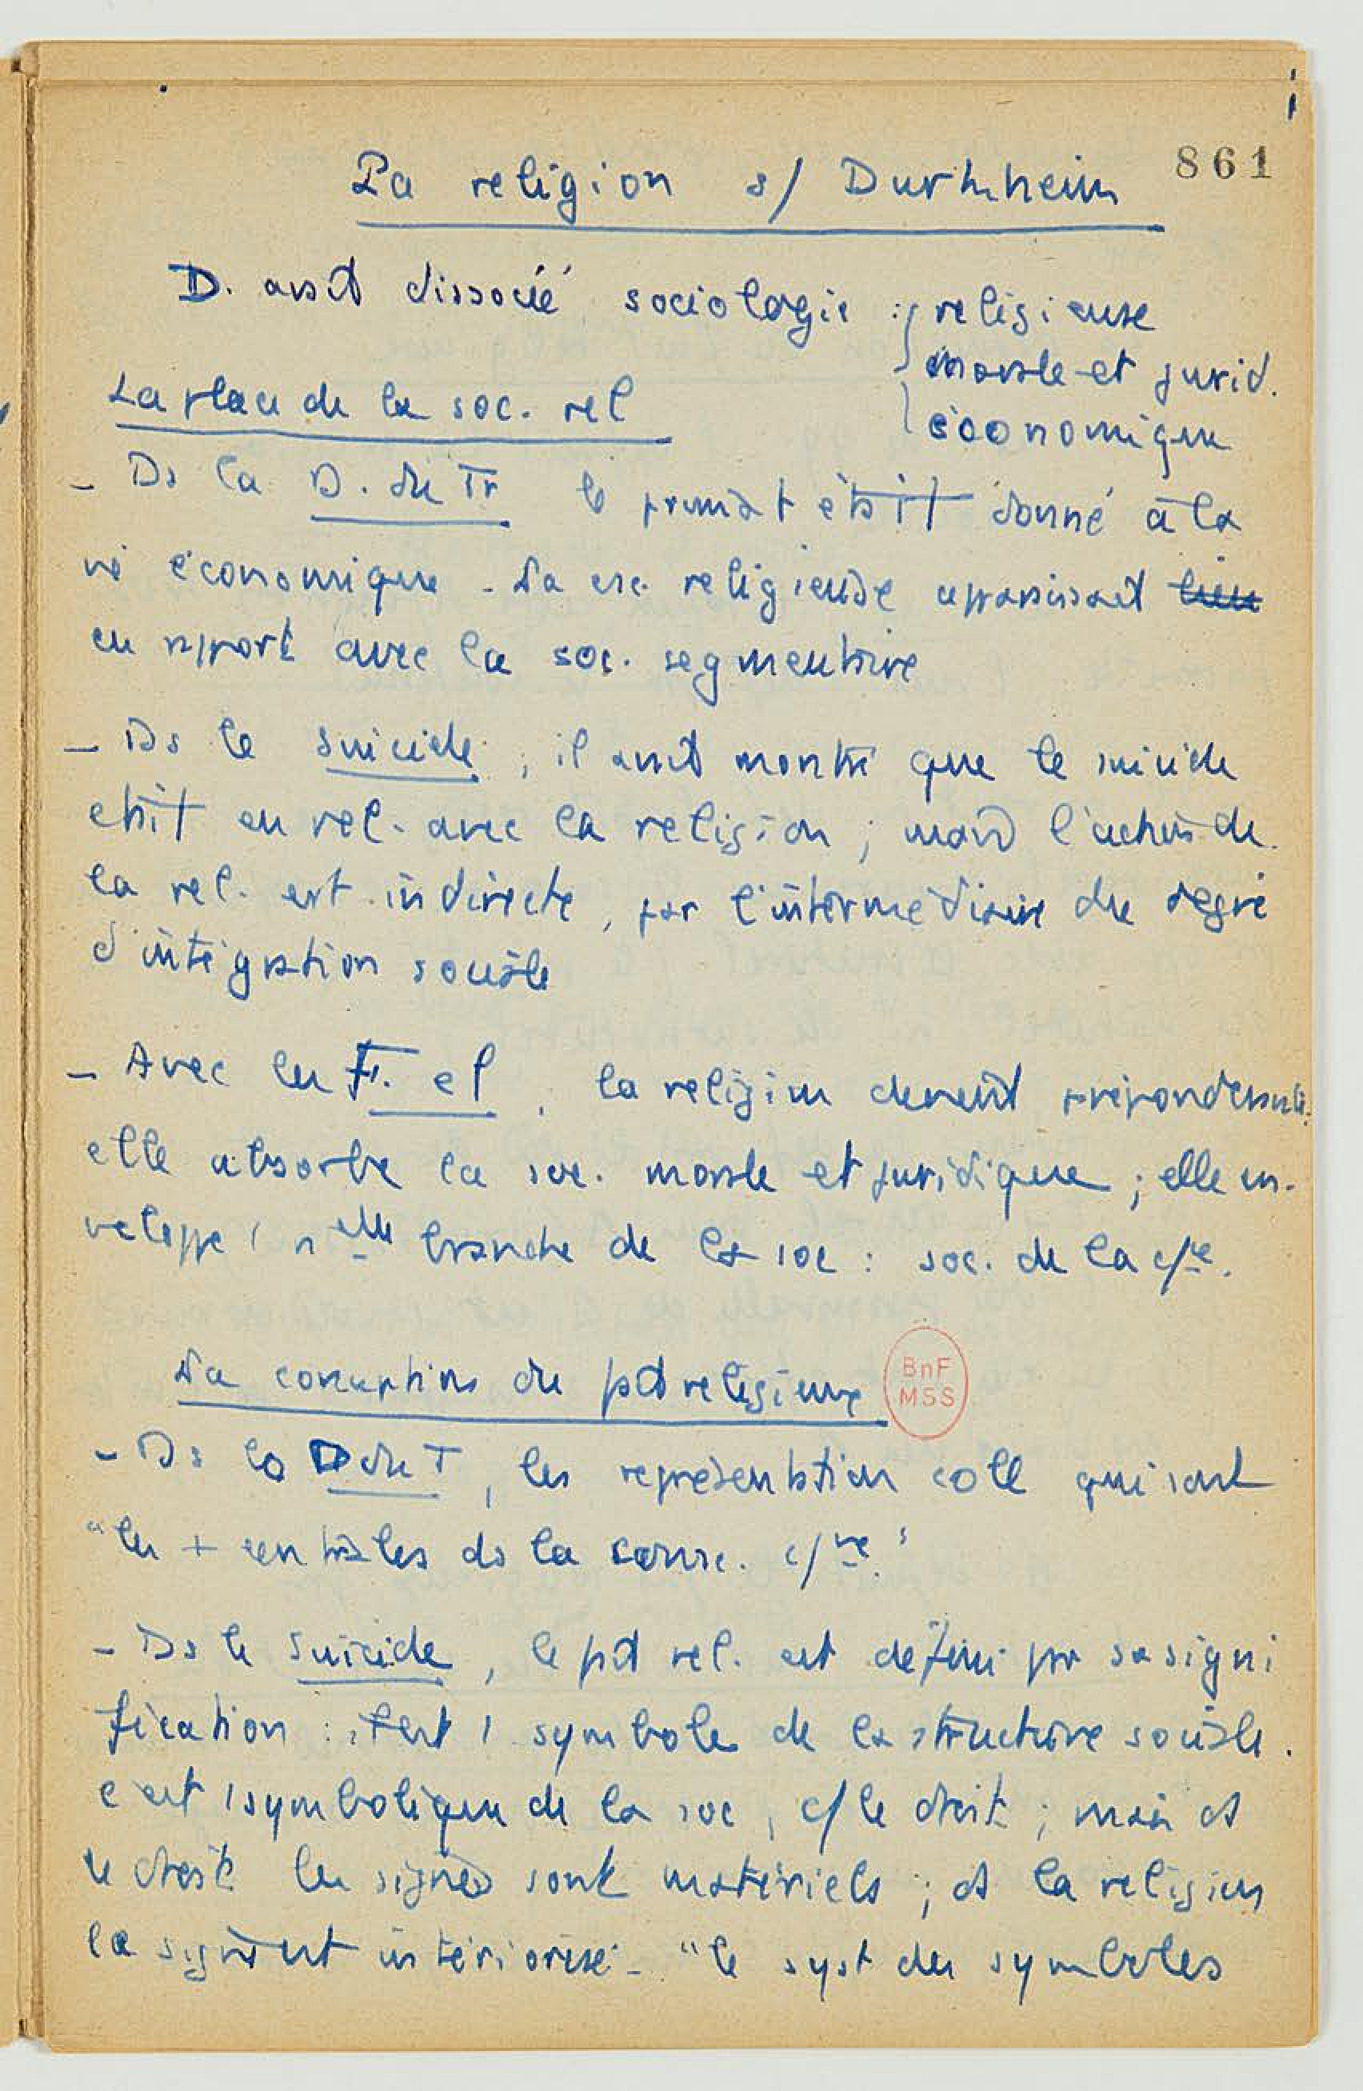 861
La religion s/ Durkheim
D. avait dissocié sociologie : religieuse
morale et jurid.
économique
La place de la soc. rel
- Ds la D. du Tr le primat était donné à la
vie économique - La soc. religieuse apparaissait lieu
en rapport avec la soc. segmentaire
- Ds le suicide, il avait montré que le suicide
était en rel. avec la religion ; mais l'action de
la rel. est indirecte, par l'intermédiaire du degré
d'intégration sociale
- Avec les F. el, la religion devient prépondérante.
elle absorbe la soc. morale et juridique ; elle en-
veloppe 1 nelle branche de la soc : soc. de la c/ce.
La conception du pd religieux
BnF
MSS
- Ds la D du T, les représentation coll qui sont
"les + centrales ds la consc. c/ve"
- Ds le suicide, le pd rel. est défini par sa signi
fication : c'est 1 symbole de la structure sociale.
c'est 1 symbolique de la soc, c/ le droit ; mais ds
le droit les signes sont matériels ; ds la religion
le signe est intériorisé - "le syst des symboles